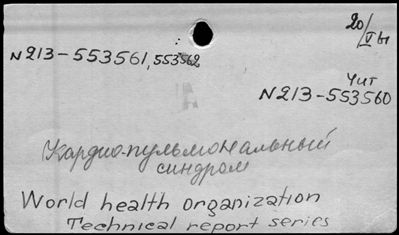 20/V 61
N 213-553561, 553562
Чит
N 213-553560
Кардио-пульмональный
синдром
World health organization
Technical report series